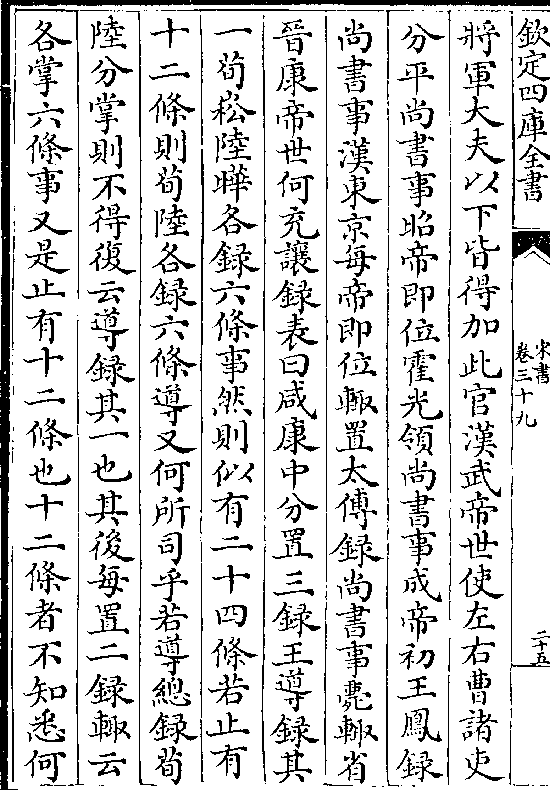 欽定四庫全書
宋書
卷三十九
二十五
將軍大夫以下皆得加此官漢武帝世使左右曹諸吏
分平尚書事昭帝即位霍光領尚書事成帝初王鳳録
尚書事漢東京每帝即位輙置太傅録尚書事薨輙省
晉康帝世何充讓録表曰咸康中分置三録王導録其
一荀崧陸曄各録六條事然則似有二十四條若止有
十二條則荀陸各録六條導又何所司乎若導總録荀
陸分掌則不得復云導録其一也其後每置二録輙云
各掌六條事又是止有十二條也十二條者不知悉何